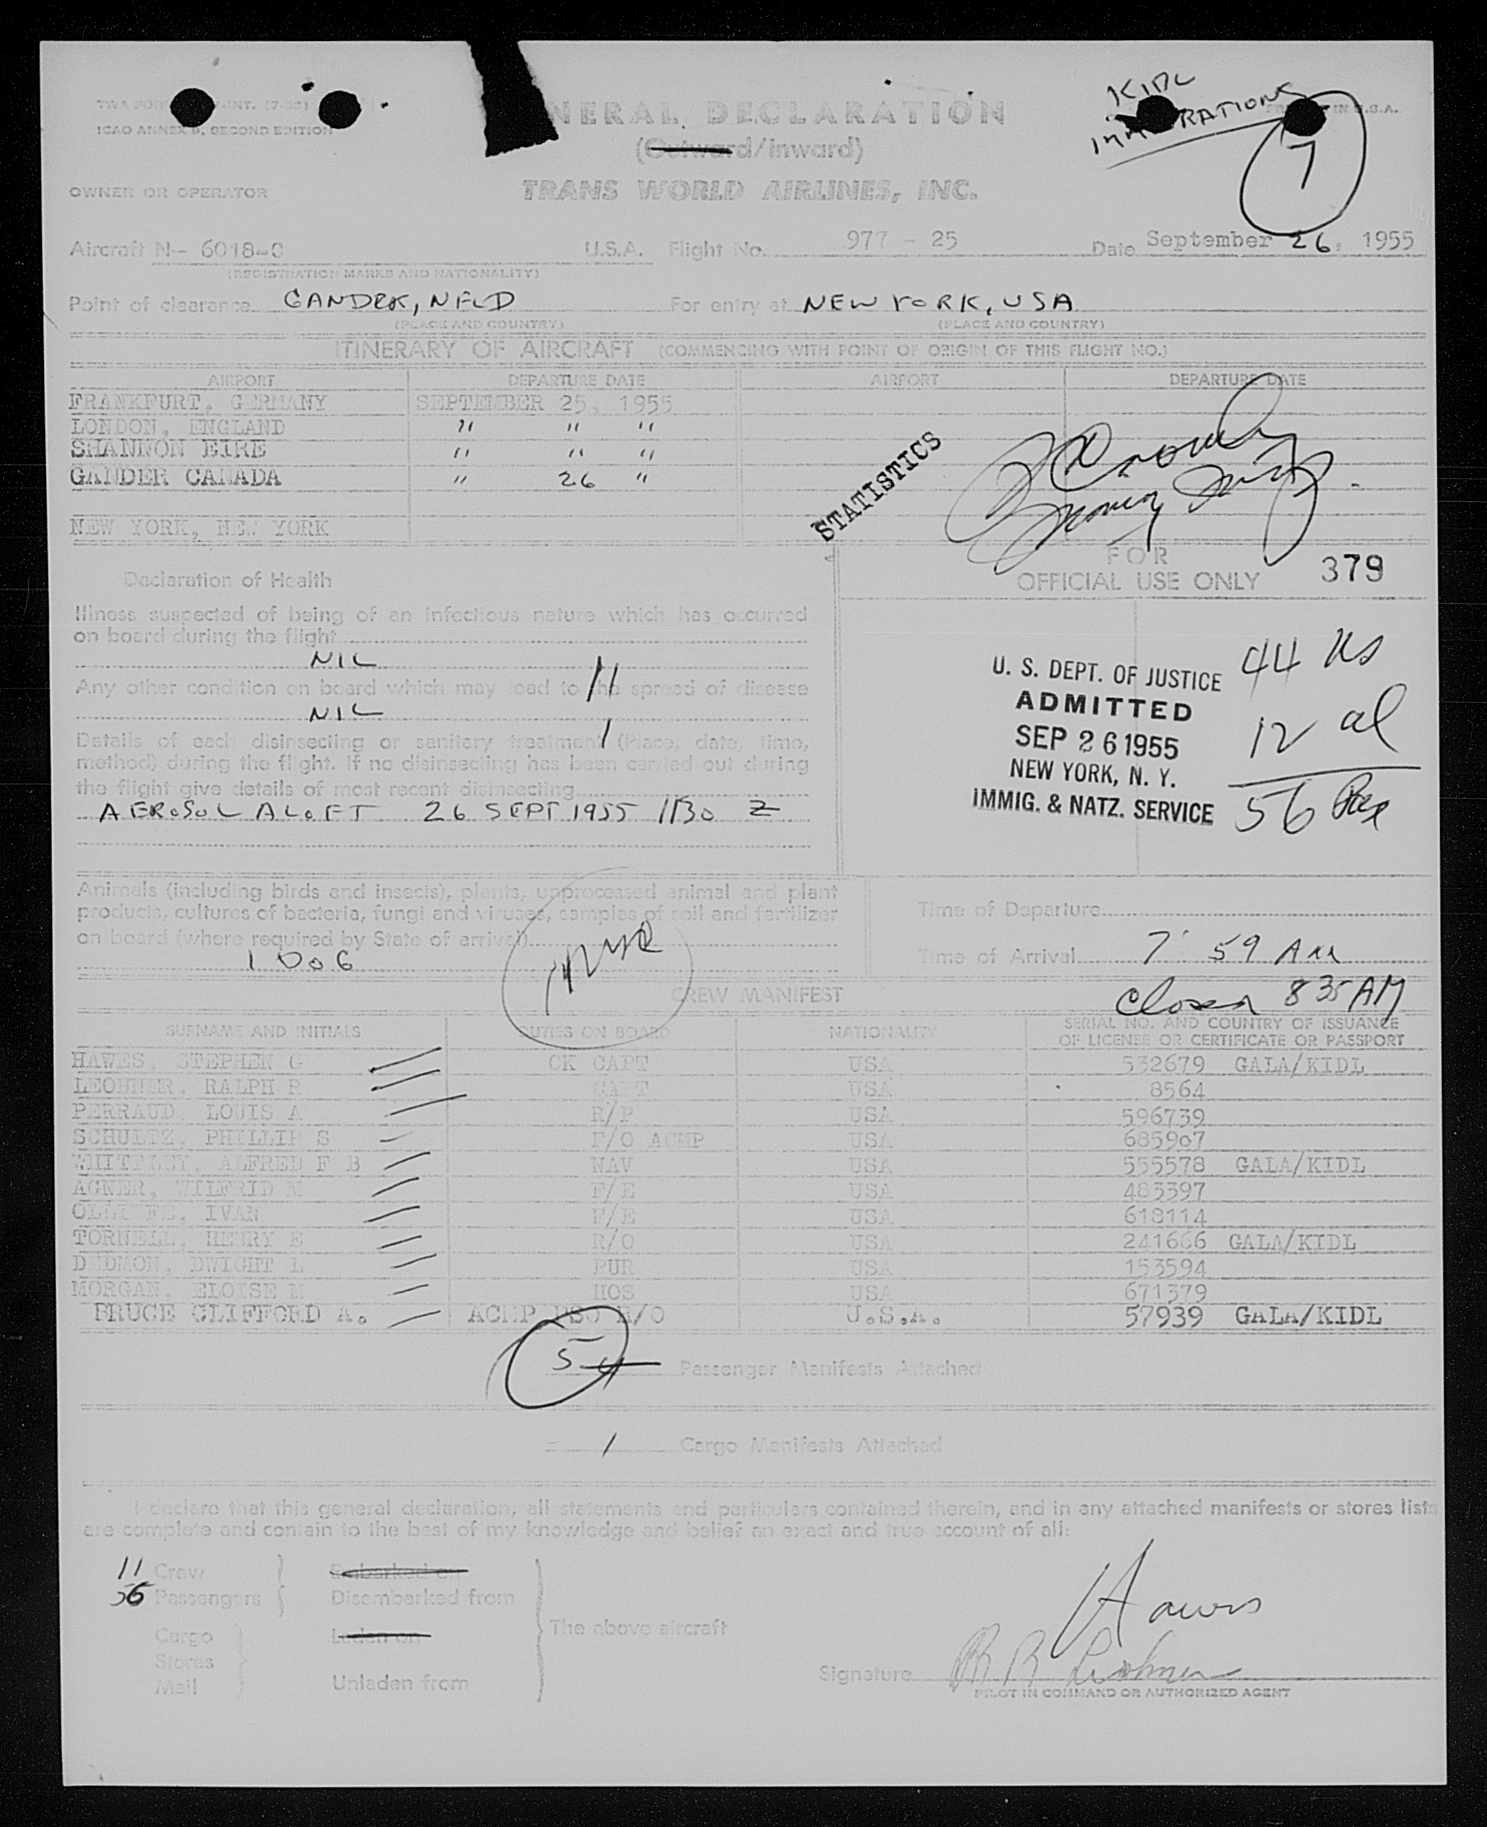 KIDL
IMMIGRATIONS
7
ICAO ANNEX 9, SECOND EDITION
IN U.S.A.
NERAL DECLARATION
(Outward/Inward)
OWNER OR OPERATOR
TRANS WORLD AIRLINES, INC.
Aircraft N- 6018-C U.S.A. Flight No. 977 - 25 Date September 26, 1955
(REGISTRATION MARKS AND NATIONALITY)
Point of clearance GANDER, NFLD For entry at NEW YORK, USA
(PLACE AND COUNTRY) (PLACE AND COUNTRY)
ITINERARY OF AIRCRAFT (COMMENCING WITH POINT OF ORIGIN OF THIS FLIGHT NO.)
AIRPORT DEPARTURE DATE AIRPORT DEPARTURE DATE
FRANKFURT, GERMANY SEPTEMBER 25, 1955
LONDON, ENGLAND " " "
SHANNON EIRE " " "
GANDER CANADA " 26 "
NEW YORK, NEW YORK
STATISTICS
FOR
OFFICIAL USE ONLY 379
Declaration of Health
Illness suspected of being of an infectious nature which has occurred
on board during the flight
NIL
Any other condition on board which may lead to the spread of disease
NIL
Details of each disinsecting or sanitary treatment (Place, date, time,
method) during the flight. If no disinsecting has been carried out during
the flight give details of most recent disinsecting
AEROSOL ALOFT 26 SEPT 1955 1130 Z
U. S. DEPT. OF JUSTICE
ADMITTED
SEP 26 1955
NEW YORK, N. Y.
IMMIG. & NATZ. SERVICE
44 us
12 al
56 Pax
Animals (including birds and insects), plants, unprocessed animal and plant
products, cultures of bacteria, fungi and viruses, samples of soil and fertilizer
on board (where required by State of arrival)
1 DOG
Time of Departure
Time of Arrival 7 59 AM
Closed 8 35 AM
CREW MANIFEST
SURNAME AND INITIALS DUTIES ON BOARD NATIONALITY SERIAL NO. AND COUNTRY OF ISSUANCE
OF LICENSE OR CERTIFICATE OR PASSPORT
HAWES, STEPHEN G CK CAPT USA 532679 GALA/KIDL
LEOHNER, RALPH R CAPT USA 8564
PERRAUD, LOUIS A R/P USA 596739
SCHULTZ, PHILLIP S F/O ACMP USA 685907
WHITTLEY, ALFRED F B NAV USA 555578 GALA/KIDL
AGNER, WILFRID M F/E USA 483397
IVAN F/E USA 618114
TORNELL, HENRY E R/O USA 241666 GALA/KIDL
DEDMON, DWIGHT L PUR USA 153594
MORGAN, ELOISE M HOS USA 671379
BRUCE CLIFFORD A. ACMP R/O U.S.A. 57939 GALA/KIDL
5 Passenger Manifests Attached
1 Cargo Manifests Attached
I declare that this general declaration, all statements and particulars contained therein, and in any attached manifests or stores lists
are complete and contain to the best of my knowledge and belief an exact and true account of all:
11 Crew Embarked on
56 Passengers Disembarked from
The above aircraft
Cargo Laden on
Stores
Mail Unladen from
Hawes
Signature R R Leohner
PILOT IN COMMAND OR AUTHORIZED AGENT